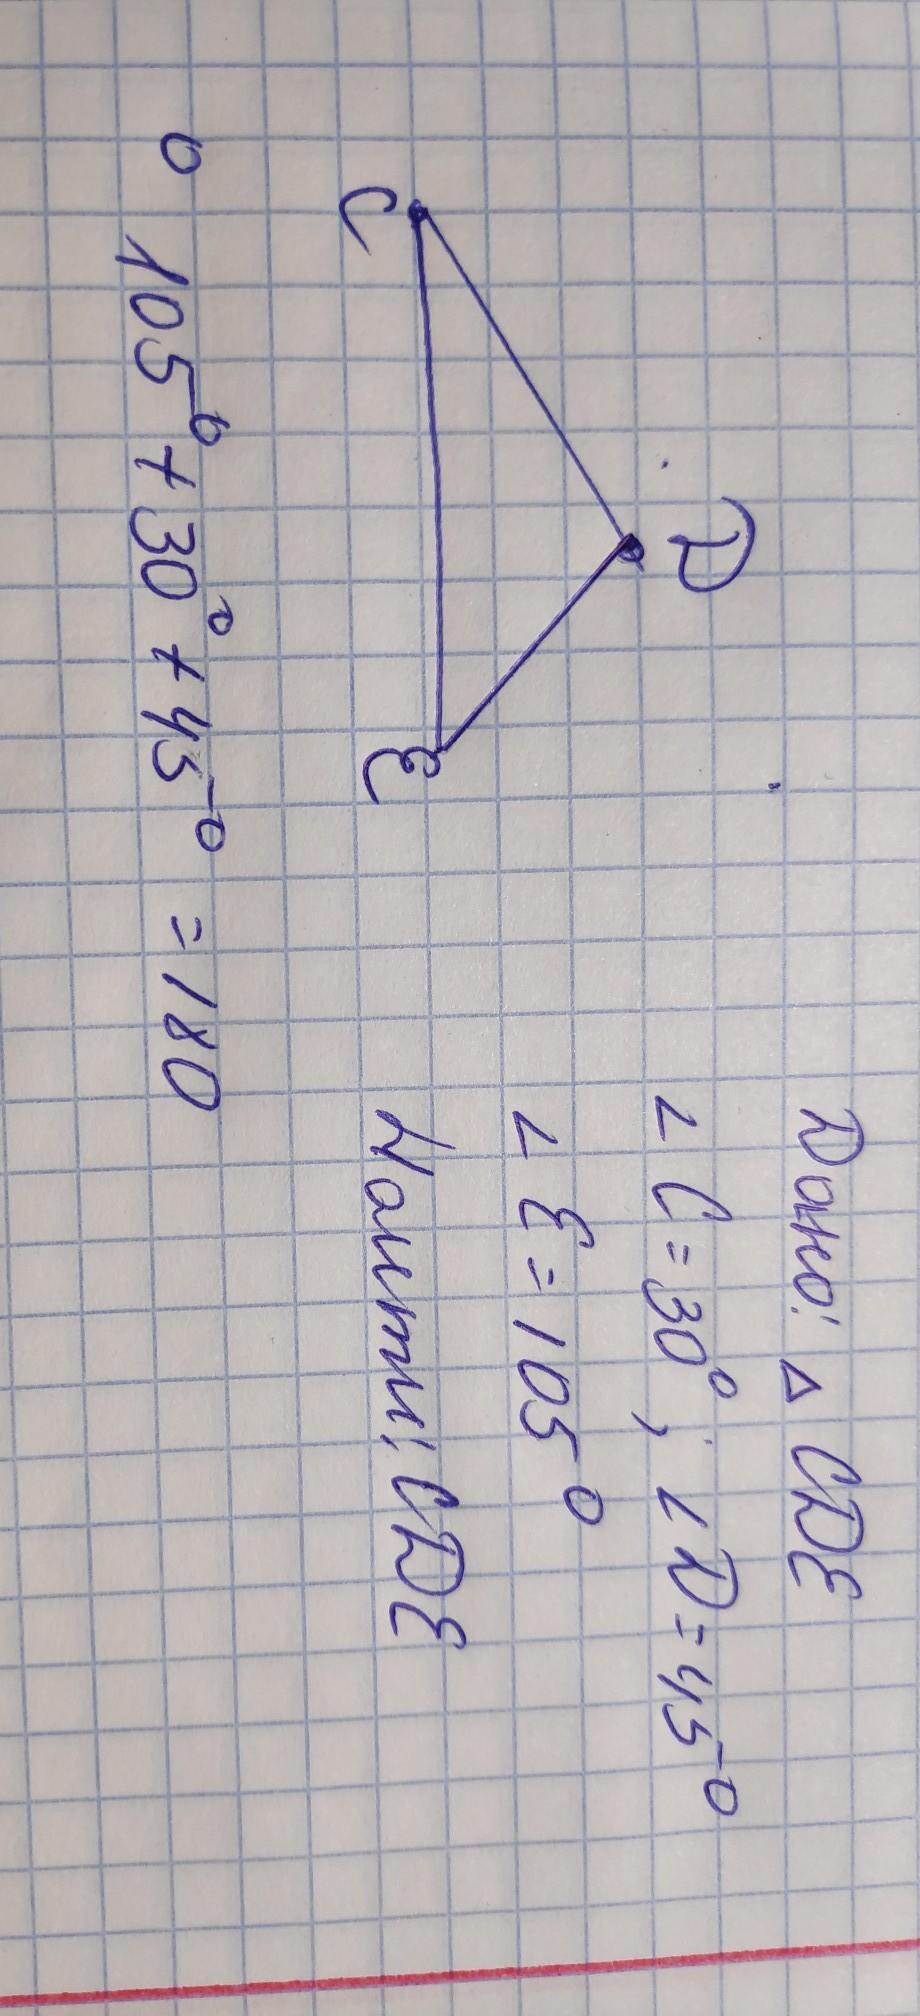 Дано: △ CDE
∠ C = 30°, ∠ D = 45°
∠ E = 105°
Найти: CDE
D
C
E
° 105° + 30° + 45° = 180